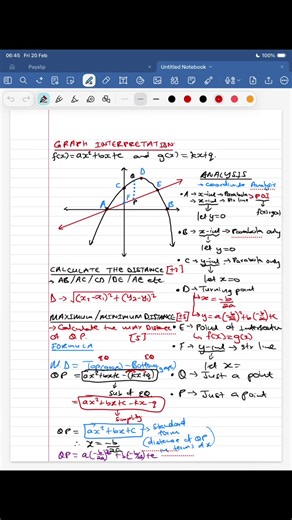 06:45 Fri 20 Feb
100%
Payslip
Untitled Notebook
GRAPH INTERPRETATION
f(x)=ax²+bx+c and g(x)=kx+q.
ANALYSIS
→ Coordinate Analysis
• A → x-int → Parabola
x-int → Str line
POI
f(x)=g(x)
let y=0
• B → x-int → Parabola only
let y=0
• C → y-int → Parabola only
let x=0
• D → Turning point
x = -b/2a
y = a(-b/2a)²+b(-b/2a)+c
• E → Point of intersection
f(x)=g(x)
• F → y-int → Str line
let x=
• Q → Just a point
• P → Just a point
A B C D E F Q P
CALCULATE THE DISTANCE [+2]
→ AB/AC/CD/DE/AE etc
D → √(x₁-x₂)²+(y₂-y₁)²
MAXIMUM/MINIMUM DISTANCE [+5]
→ Calculate the max Distance
of QP [5]
FORMULA
EQ EQ
M.D = Top(graph) - Bottom(graph)
QP = ax²+bx+c-(kx+q)
Sub of EQ
= ax²+bx+c-kx-q
Simplify
QP = ax²+bx+c → Standard
form
(distance of QP
in terms of x
∴ x = -b/2a
QP = a(-b/2a)²+b(-b/2a)+c